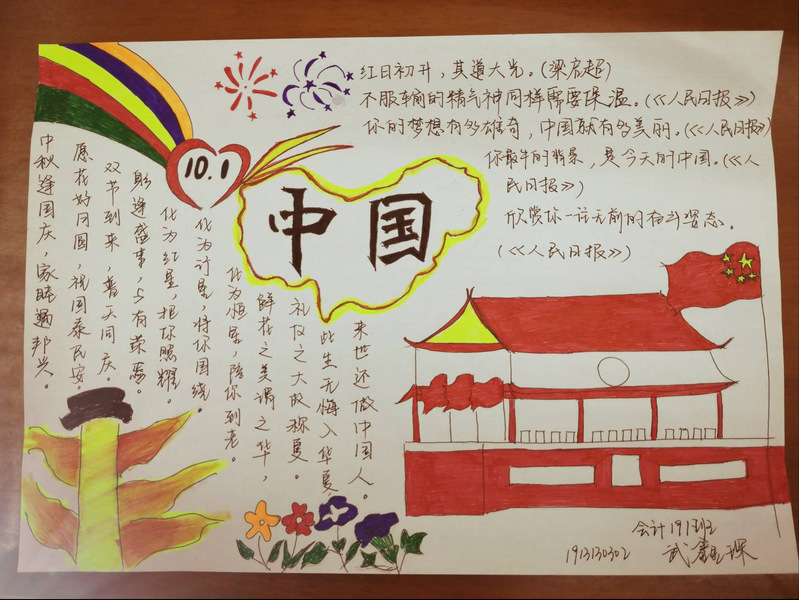 10.1
中国
红日初升，其道大光。(梁启超)
不服输的精气神同样需要保温。(《人民日报》)
你的梦想有多雄奇，中国就有多美丽。(《人民日报》)
你最牛的背景，是今天的中国。(《人
民日报》)
欣赏你一往无前的奋斗姿态。
(《人民日报》)
中秋逢国庆，家睦遇邦兴。
愿花好月圆，祝国泰民安。
双节到来，普天同庆。
躬逢盛事，与有荣焉。
化为红星，把你照耀。
化为行星，将你围绕。
化为恒星，陪你到老。
鲜花之美谓之华，
礼仪之大故称夏。
此生无悔入华夏，
来世还做中国人。
会计191班
1913130302 武鑫琛